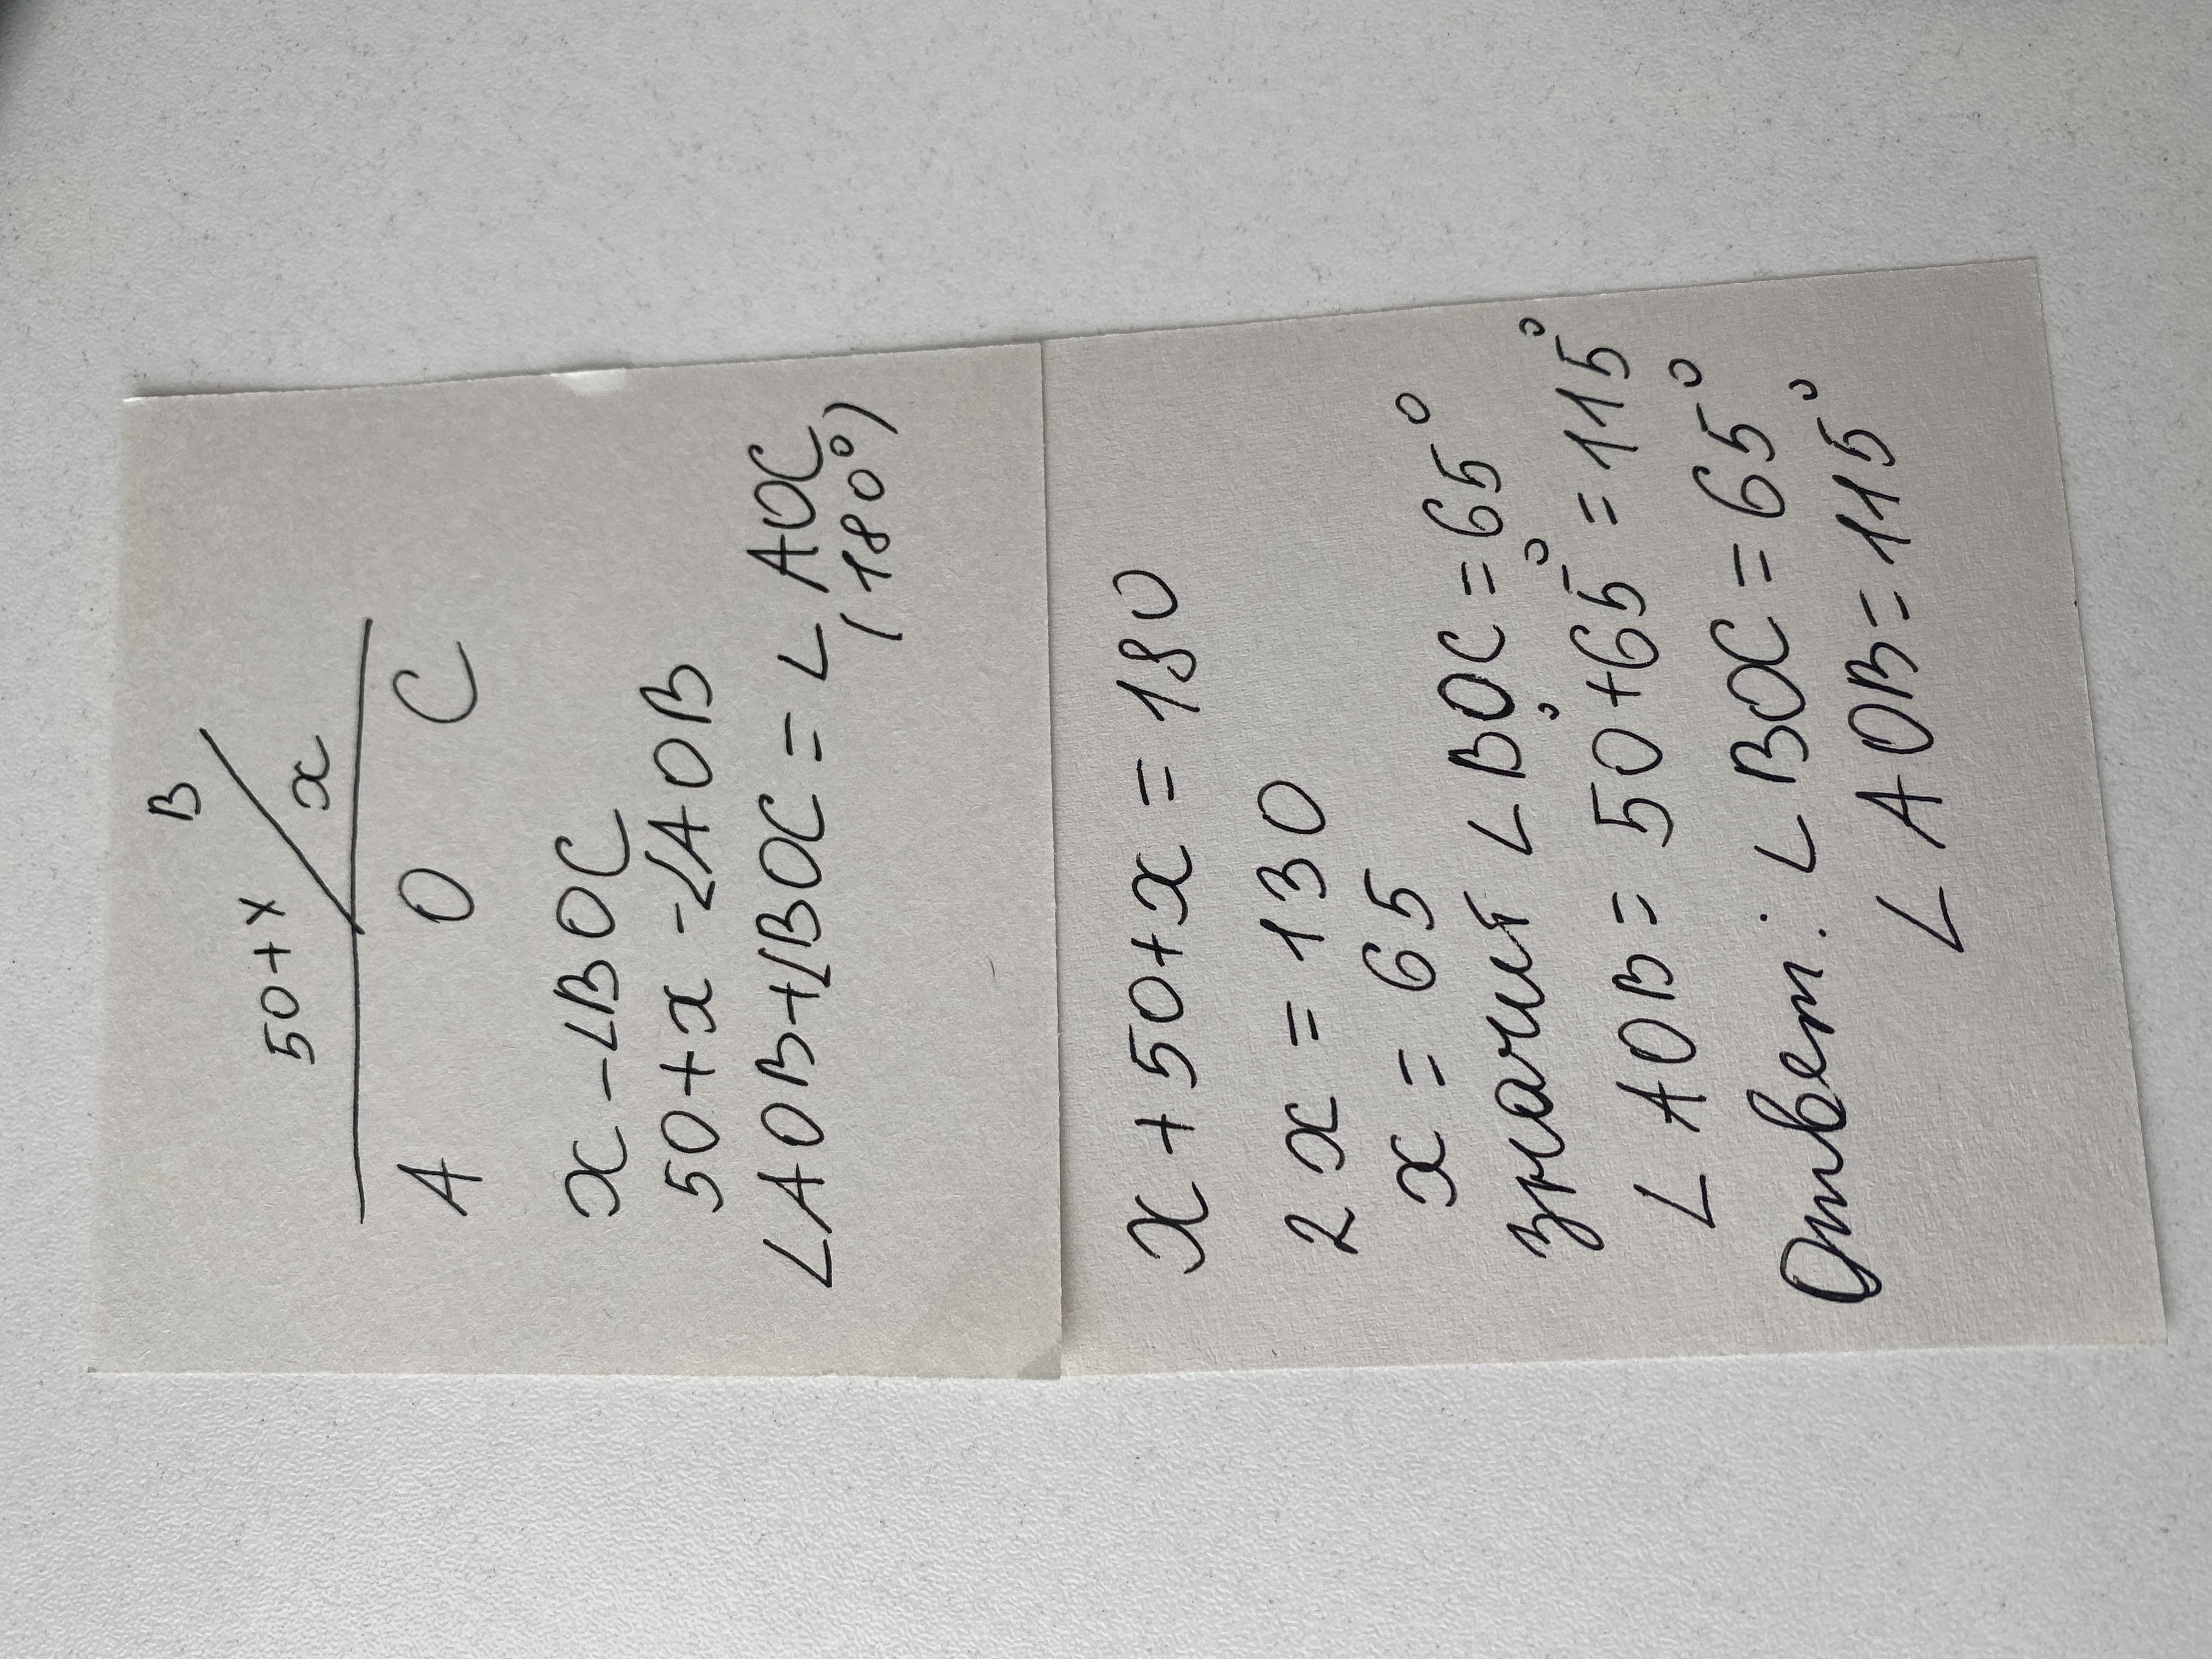 B
50+x
x
A O C
x - ∠BOC
50+x - ∠AOB
∠AOB+∠BOC = ∠AOC
(180°)
x+50+x = 180
2x = 130
x = 65
значит ∠BOC = 65°
∠AOB = 50°+65° = 115°
Ответ: ∠BOC = 65°
∠AOB = 115°